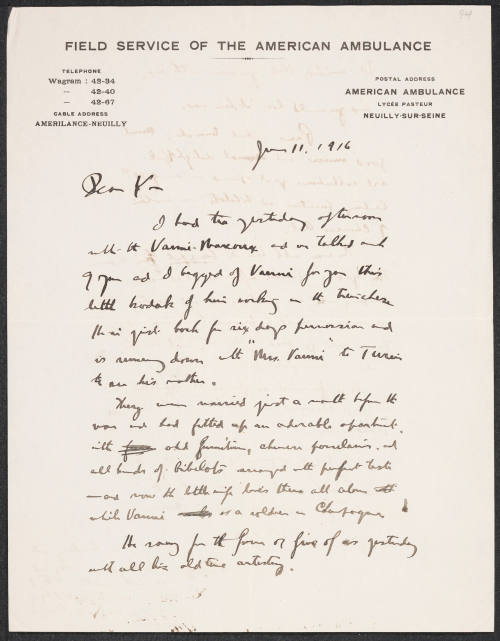 94
FIELD SERVICE OF THE AMERICAN AMBULANCE
TELEPHONE
Wagram : 42-34
— 42-40
— 42-67
CABLE ADDRESS
AMERILANCE-NEUILLY
POSTAL ADDRESS
AMERICAN AMBULANCE
LYCÉE PASTEUR
NEUILLY-SUR-SEINE
June 11. 1916
Dear
I had tea yesterday afternoon
with the Vanni-Marcoux and we talked much
of you and I begged of Vanni for you this
little kodak of him working in the trenches
He is just back for six days permission and
is running down with "Mrs. Vanni" to Turin
to see his mother.
They were married just a month before the
war and had fitted up an adorable apartment,
with old furniture, chinese porcelains, and
all kinds of bibelots arranged with perfect taste
— and now the little wife lives there all alone
while Vanni is a soldier in Champagne
He sang for the four or five of us yesterday
with all his old time artistry.